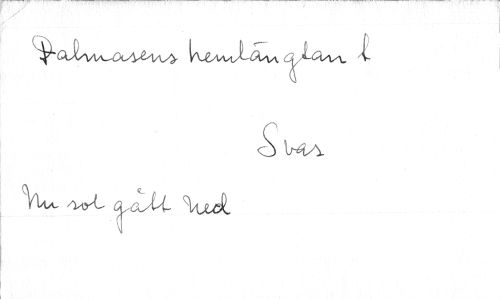 Dalmasens hemlängtan t
Svas
Nu sol gått ned